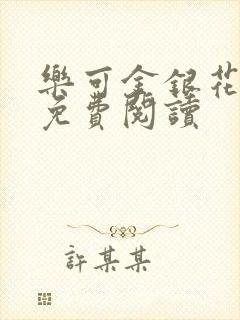 樂可金銀花
免費閱讀
許某某